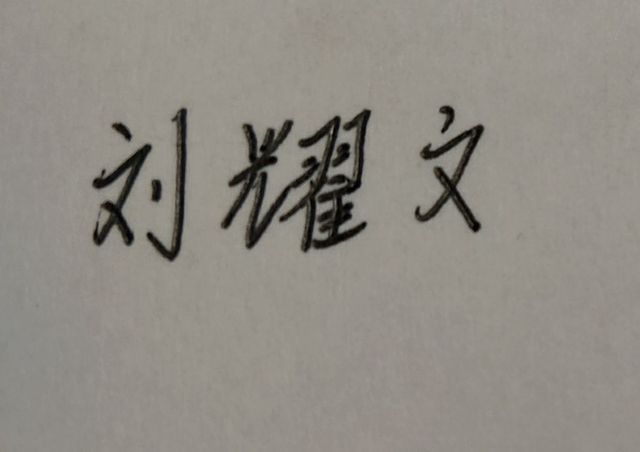 刘耀文